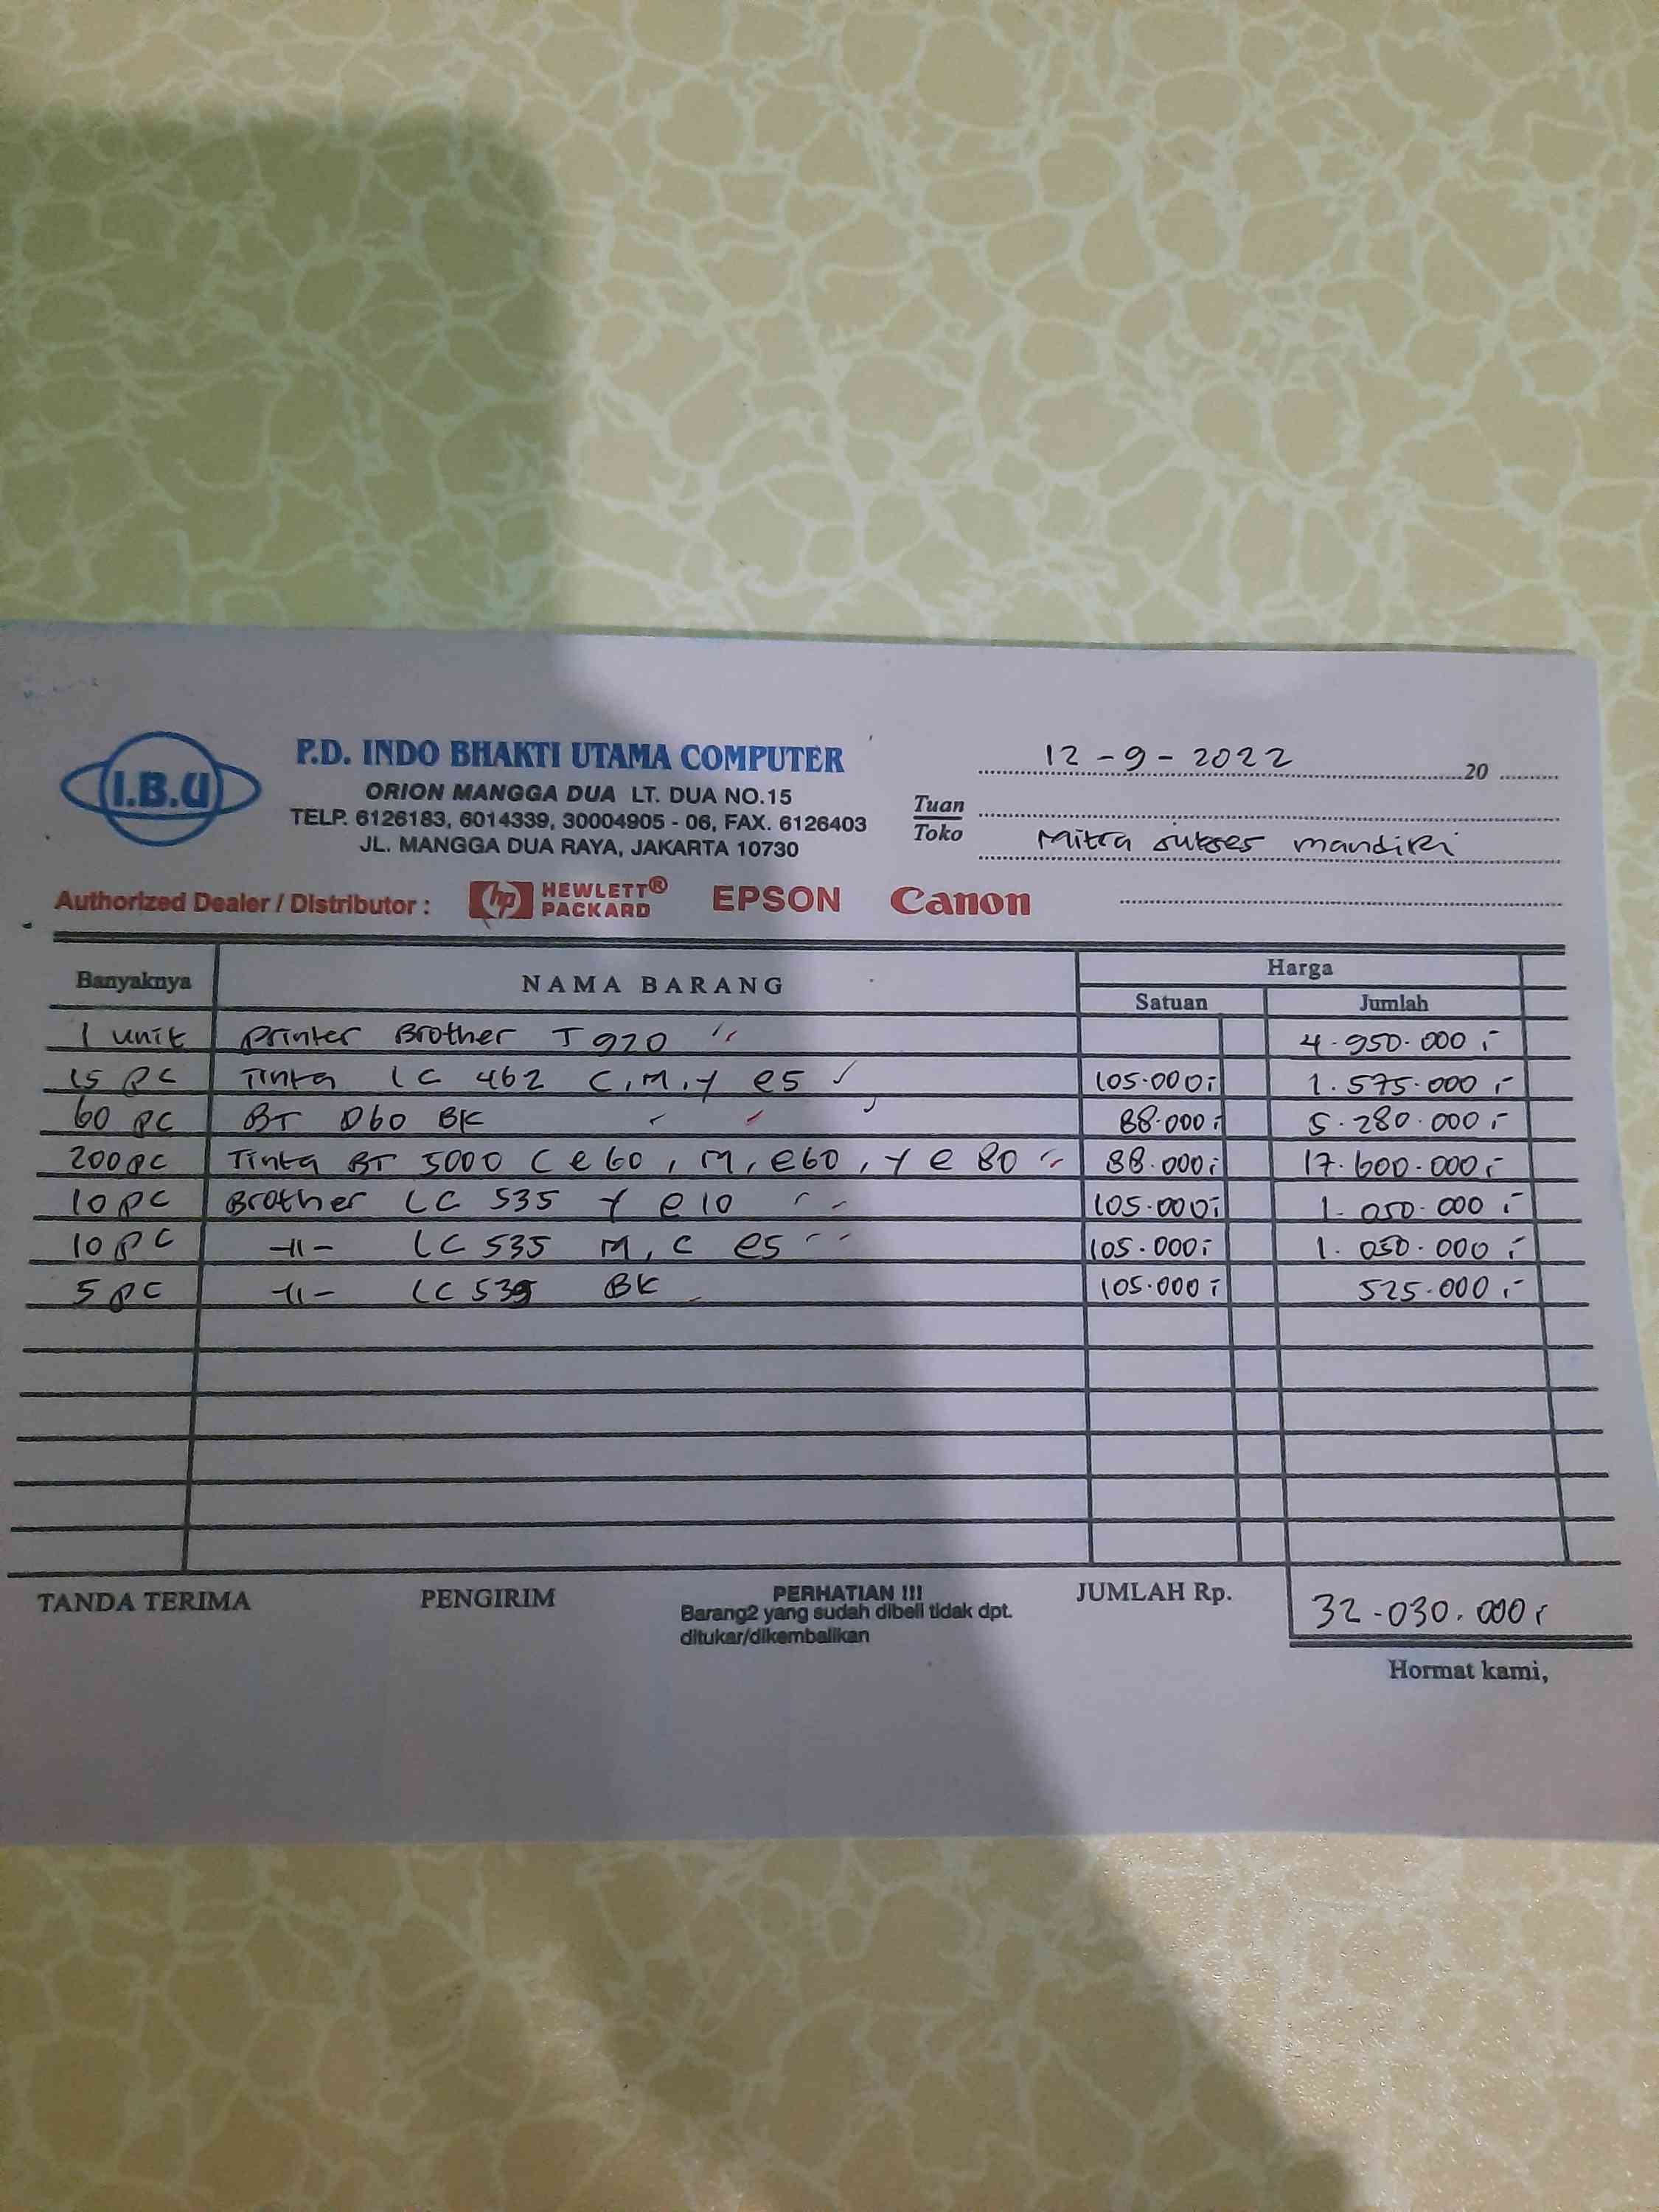 I.B.U
P.D. INDO BHAKTI UTAMA COMPUTER
ORION MANGGA DUA LT. DUA NO.15
TELP. 6126183, 6014339, 30004905 - 06, FAX. 6126403
JL. MANGGA DUA RAYA, JAKARTA 10730
12 - 9 - 2022 20
Tuan
Toko Mitra sukses mandiri
Authorized Dealer / Distributor : hp HEWLETT® PACKARD EPSON Canon
Banyaknya NAMA BARANG Harga
Satuan Jumlah
1 unit Printer Brother T 920 4.950.000,-
15 pc Tinta LC 462 C, M, Y @5 105.000,- 1.575.000,-
60 pc BT D60 BK 88.000,- 5.280.000,-
200 pc Tinta BT 5000 C @ 60, M, @60, Y @ 80 88.000,- 17.600.000,-
10 pc Brother LC 535 Y @ 10 105.000,- 1.050.000,-
10 pc -11- LC 535 M, C @5 105.000,- 1.050.000,-
5 pc -11- LC 539 BK 105.000,- 525.000,-
TANDA TERIMA PENGIRIM PERHATIAN !!! JUMLAH Rp. 32.030.000,-
Barang2 yang sudah dibeli tidak dpt.
ditukar/dikembalikan
Hormat kami,